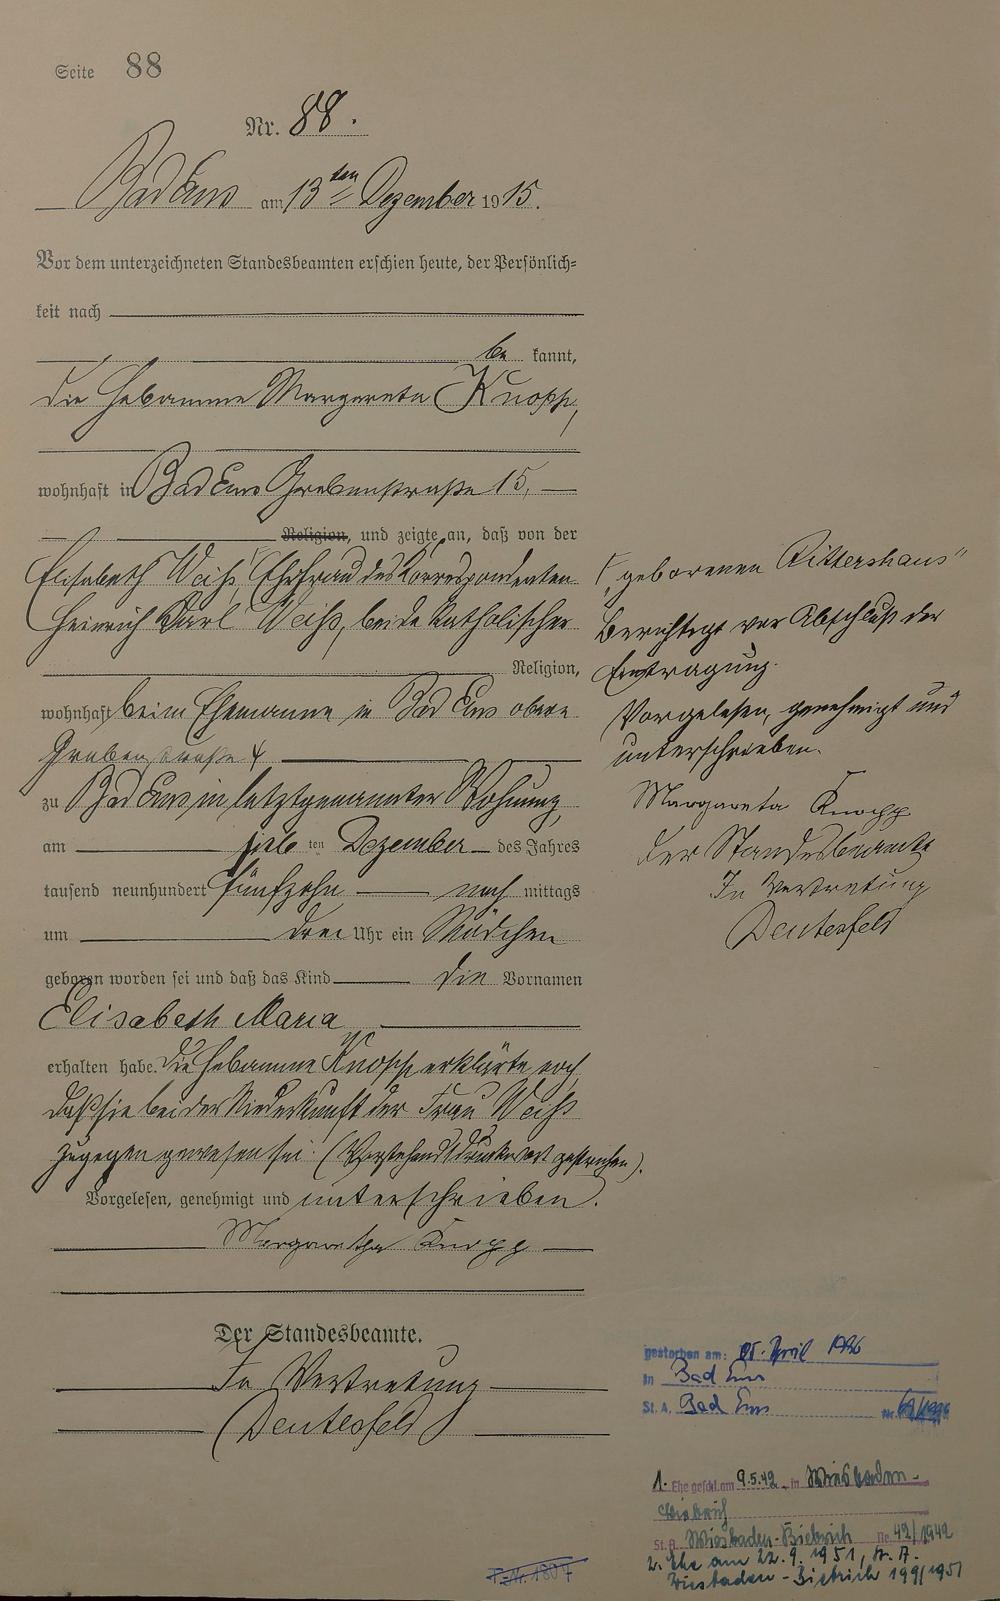 Seite 88
Nr. 88.
Bad Ems am 13ten Dezember 1915.
Vor dem unterzeichneten Standesbeamten erschien heute, der Persönlich-
keit nach
be kannt,
die Hebamme Margareta Knopp,
wohnhaft in Bad Ems Grabenstraße 15,
Religion, und zeigte an, daß von der
Elisabeth Weiß, ⌈ Ehefrau des Korrespondenten
Heinrich Karl Weiß, beide katholischer
Religion,
wohnhaft beim Ehemanne in Bad Ems obere
Grabenstraße 4
zu Bad Ems in letztgenannter Wohnung,
am ten Dezember des Jahres
tausend neunhundert fünfzehn nach mittags
um drei Uhr ein Mädchen
geboren worden sei und daß das Kind die Vornamen
Elisabeth Maria
erhalten habe. Die Hebamme Knopp erklärte noch,
daß sie bei der Niederkunft der Frau Weiß
zugegen gewesen sei. (Vorstehend 1 Druckwort gestrichen).
Vorgelesen, genehmigt und unterschrieben.
Margaretha Knopp
Der Standesbeamte.
In Vertretung
Deutesfeld
⌈ "geborenen Rittershaus"
Berichtigt vor Abschluß der
Eintragung.
Vorgelesen, genehmigt und
unterschrieben.
Margareta Knopp
Der Standesbeamte
In Vertretung
Deutesfeld
gestorben am: April
in Bad Ems
St. A. Bad Ems Nr.
1. Ehe geschl. am 9.5.42 in Wiesbaden-
Biebrich
St. A. Wiesbaden-Biebrich Nr. 42/1942
2. Ehe am 22.9.1951, St. A.
Wiesbaden-Biebrich 199/1951